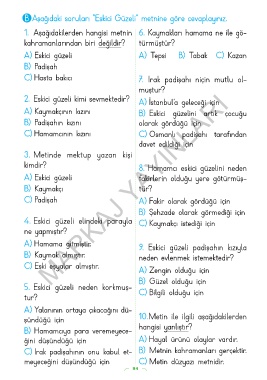 B Aşağıdaki soruları "Eskici Güzeli" metnine göre cevaplayınız.
1. Aşağıdakilerden hangisi metnin
kahramanlarından biri değildir?
A) Eskici güzeli
B) Padişah
C) Hasta bakıcı
2. Eskici güzeli kimi sevmektedir?
A) Kaymakçının kızını
B) Padişahın kızını
C) Hamamcının kızını
3. Metinde mektup yazan kişi
kimdir?
A) Eskici güzeli
B) Kaymakçı
C) Padişah
4. Eskici güzeli elindeki parayla
ne yapmıştır?
A) Hamama gitmiştir.
B) Kaymak almıştır.
C) Eski eşyalar almıştır.
5. Eskici güzeli neden korkmuş-
tur?
A) Yalanının ortaya çıkacağını dü-
şündüğü için
B) Hamamcıya para veremeyece-
ğini düşündüğü için
C) Irak padişahının onu kabul et-
meyeceğini düşündüğü için
6. Kaymakları hamama ne ile gö-
türmüştür?
A) Tepsi B) Tabak C) Kazan
7. Irak padişahı niçin mutlu ol-
muştur?
A) İstanbul'a geleceği için
B) Eskici güzelini artık çocuğu
olarak gördüğü için
C) Osmanlı padişahı tarafından
davet edildiği için
8. Hamamcı eskici güzelini neden
fakirlerin olduğu yere götürmüş-
tür?
A) Fakir olarak gördüğü için
B) Şehzade olarak görmediği için
C) Kaymakçı istediği için
9. Eskici güzeli padişahın kızıyla
neden evlenmek istemektedir?
A) Zengin olduğu için
B) Güzel olduğu için
C) Bilgili olduğu için
10. Metin ile ilgili aşağıdakilerden
hangisi yanlıştır?
A) Hayal ürünü olaylar vardır.
B) Metnin kahramanları gerçektir.
C) Metin düzyazı metnidir.
MARKAJ YAYINLARI